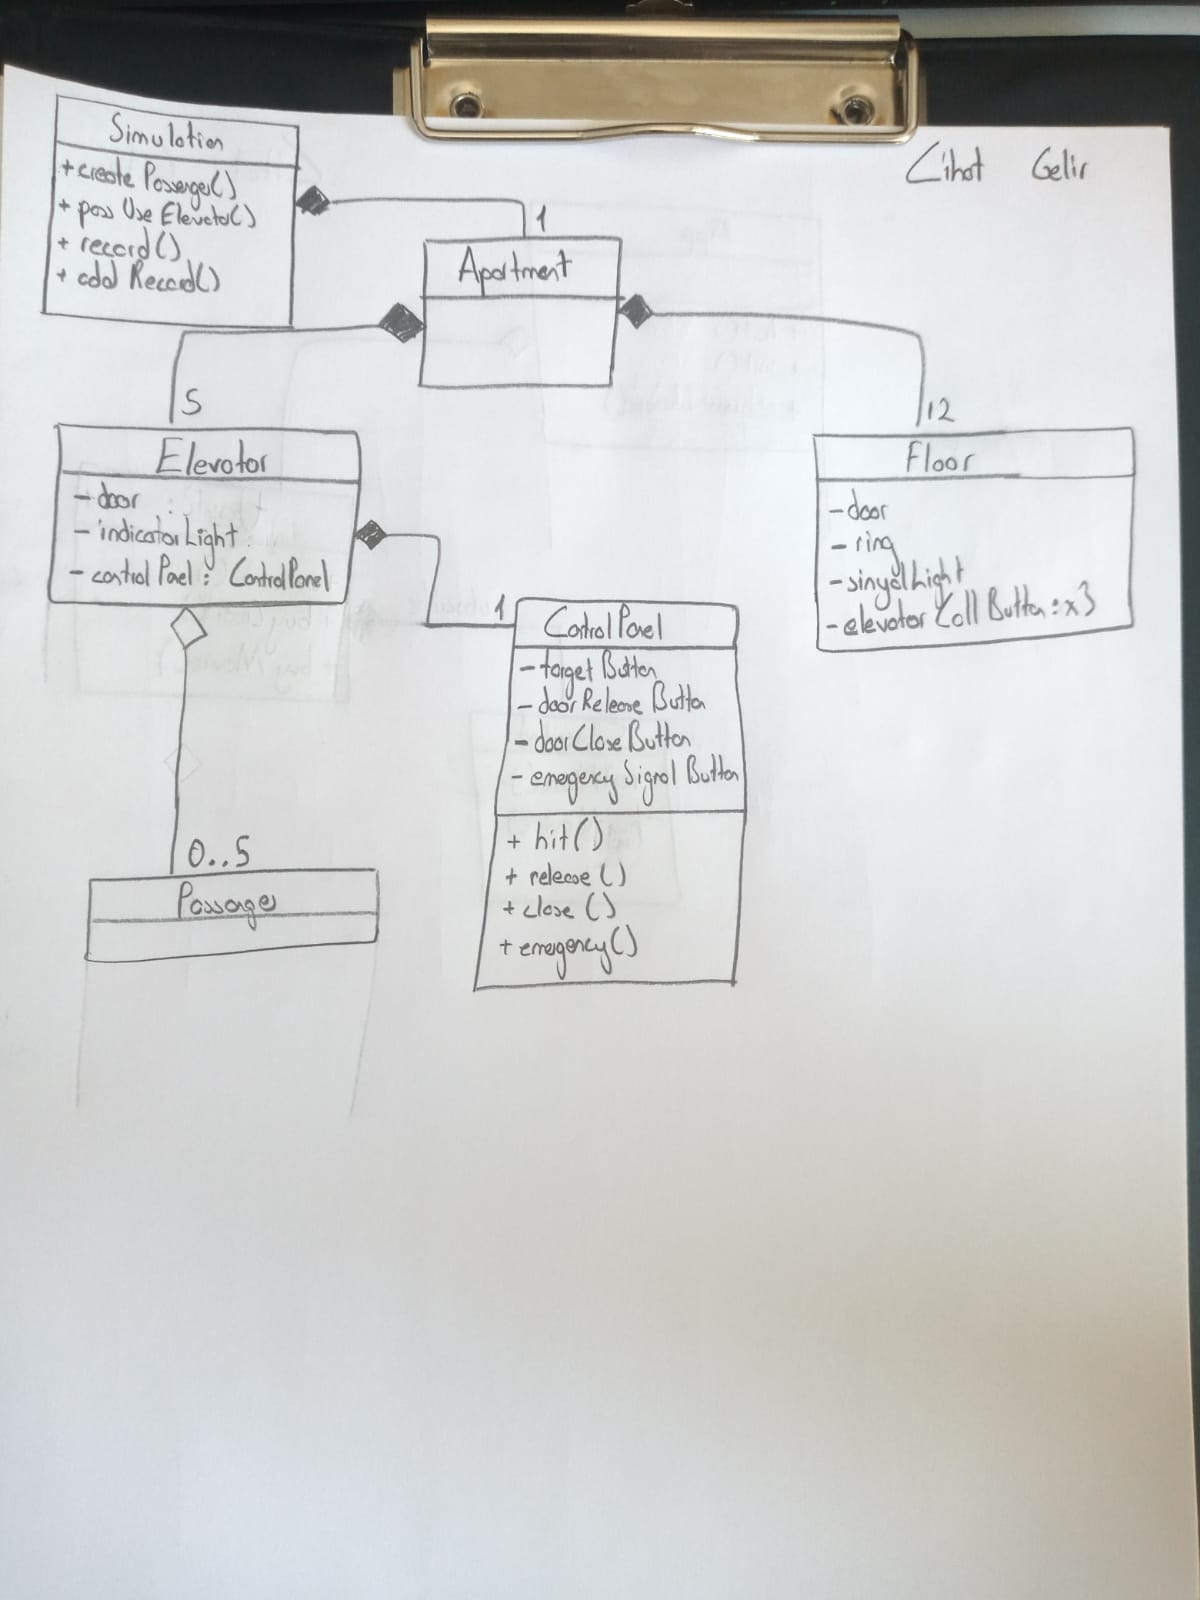 Cihat Gelir
Simulation
+ create Passenger()
+ pass Use Elevator()
+ record()
+ add Record()
1
Apartment
5
12
Elevator
- door
- indicatorLight
- control Pael : ControlPanel
Floor
- door
- ring
- sinyalLight
- elevator Call Button : x3
1
Control Panel
- target Button
- door Release Button
- doorClose Button
- emegency Signal Button
+ hit()
+ release()
+ close()
+ emergency()
0..5
Passanger